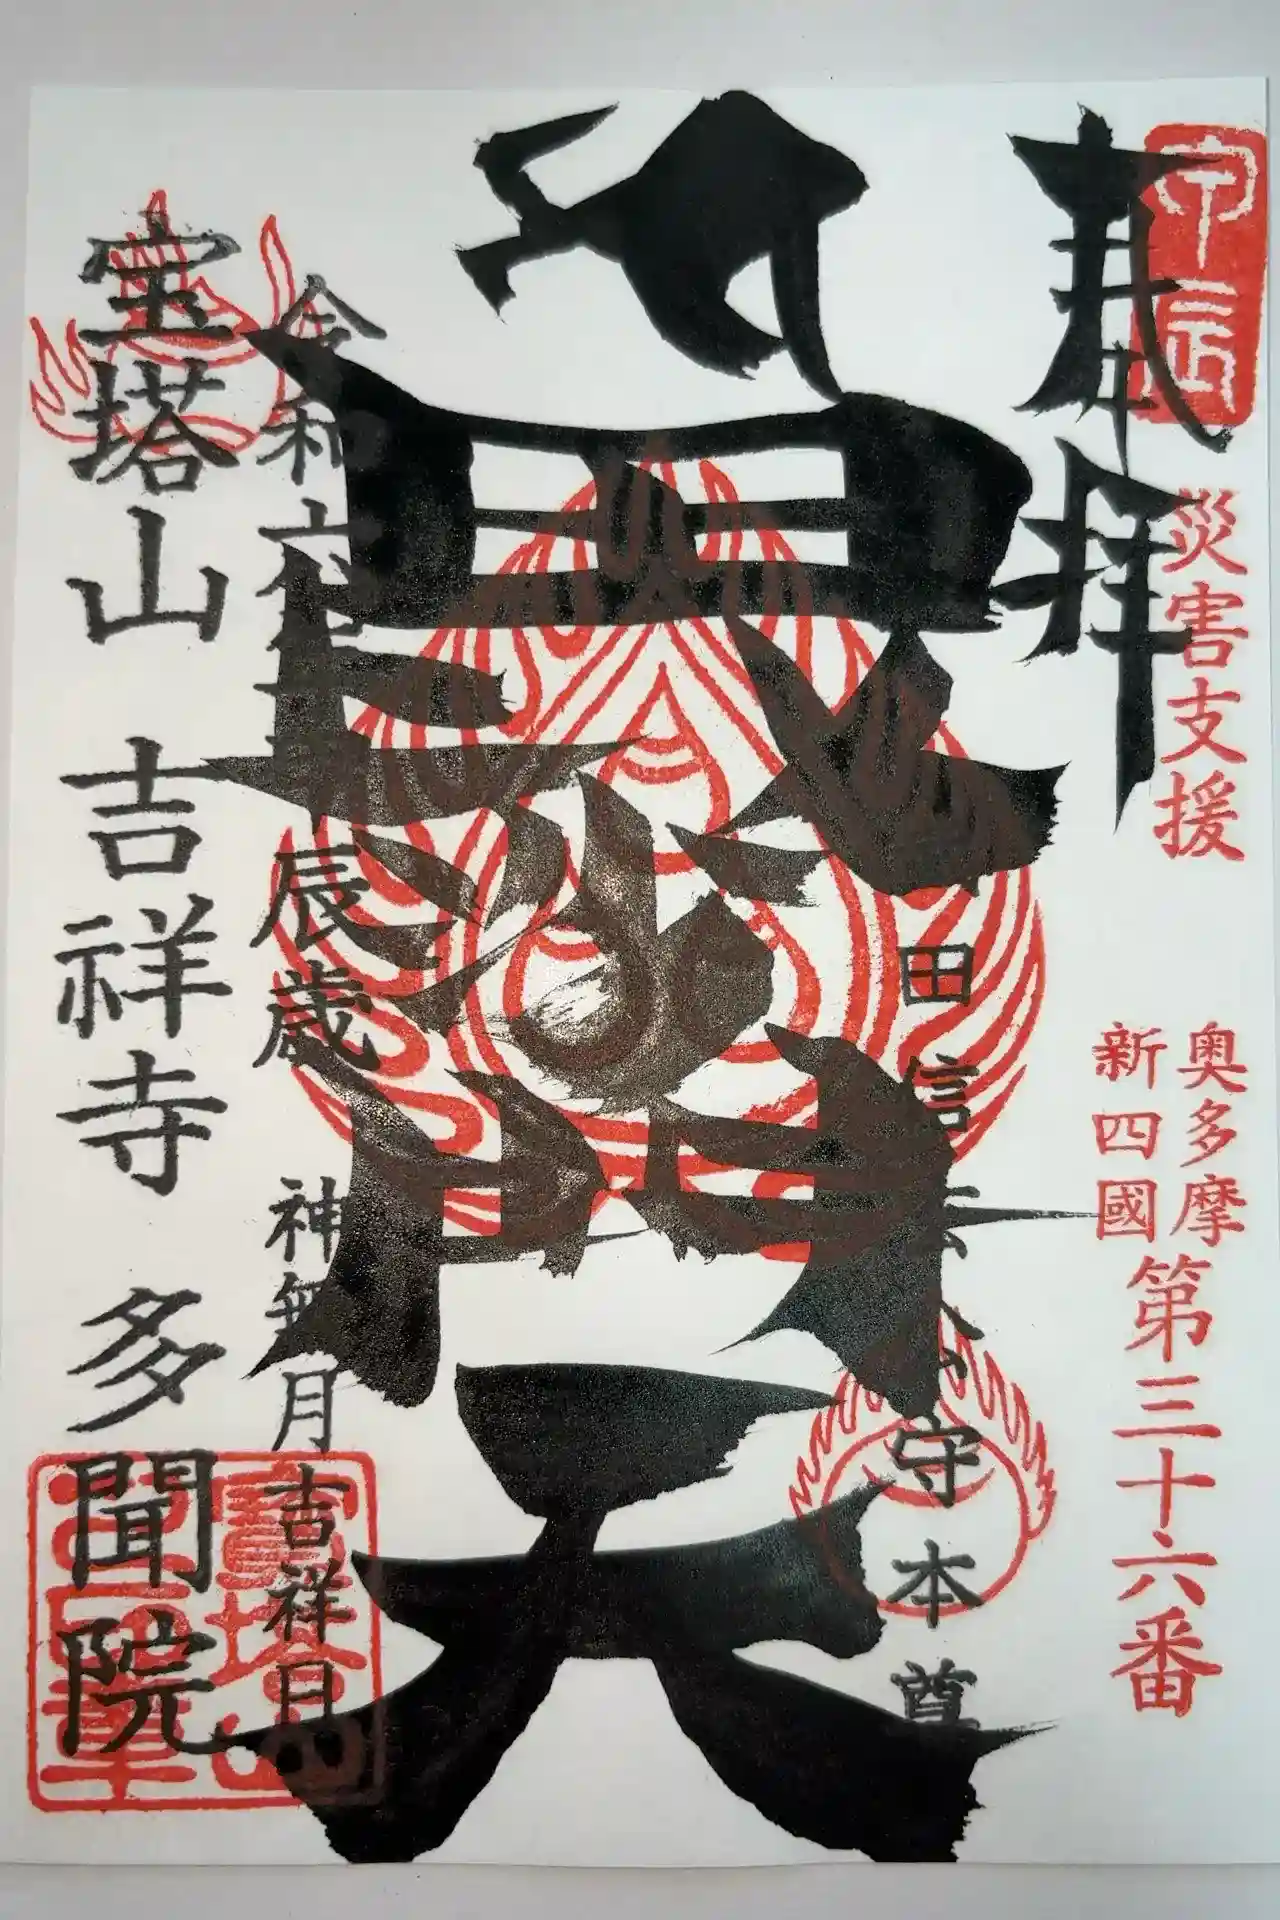 甲辰
奉拝
災害支援
奥多摩
新四國
第三十六番
田信玄公守本尊
毘沙門天
令和六年甲辰歳 神無月 吉祥日
宝塔山 吉祥寺 多聞院